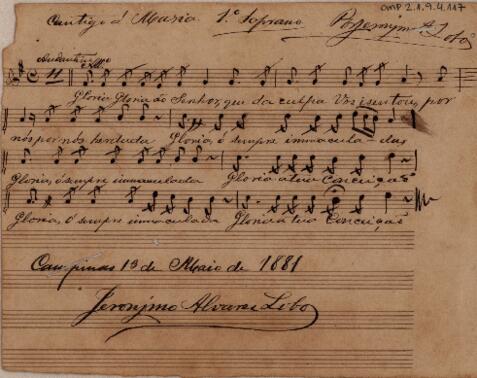 OMP 2.1.9.4.117
Cantigo á Maria 1.º Soprano Por Jeronymo A. Lobo
Andante
Gloria, Gloria ao Senhor, que da culpa Vos isentou, por
nós por nós herdada Gloria, ó sempre immacula-das
Gloria, ó sempre immaculada Gloria a tua Conceição
Gloria, ó sempre immaculada Gloria a tua Conceição
Campinas 13 de Maio de 1881
Jeronymo Alvares Lobo